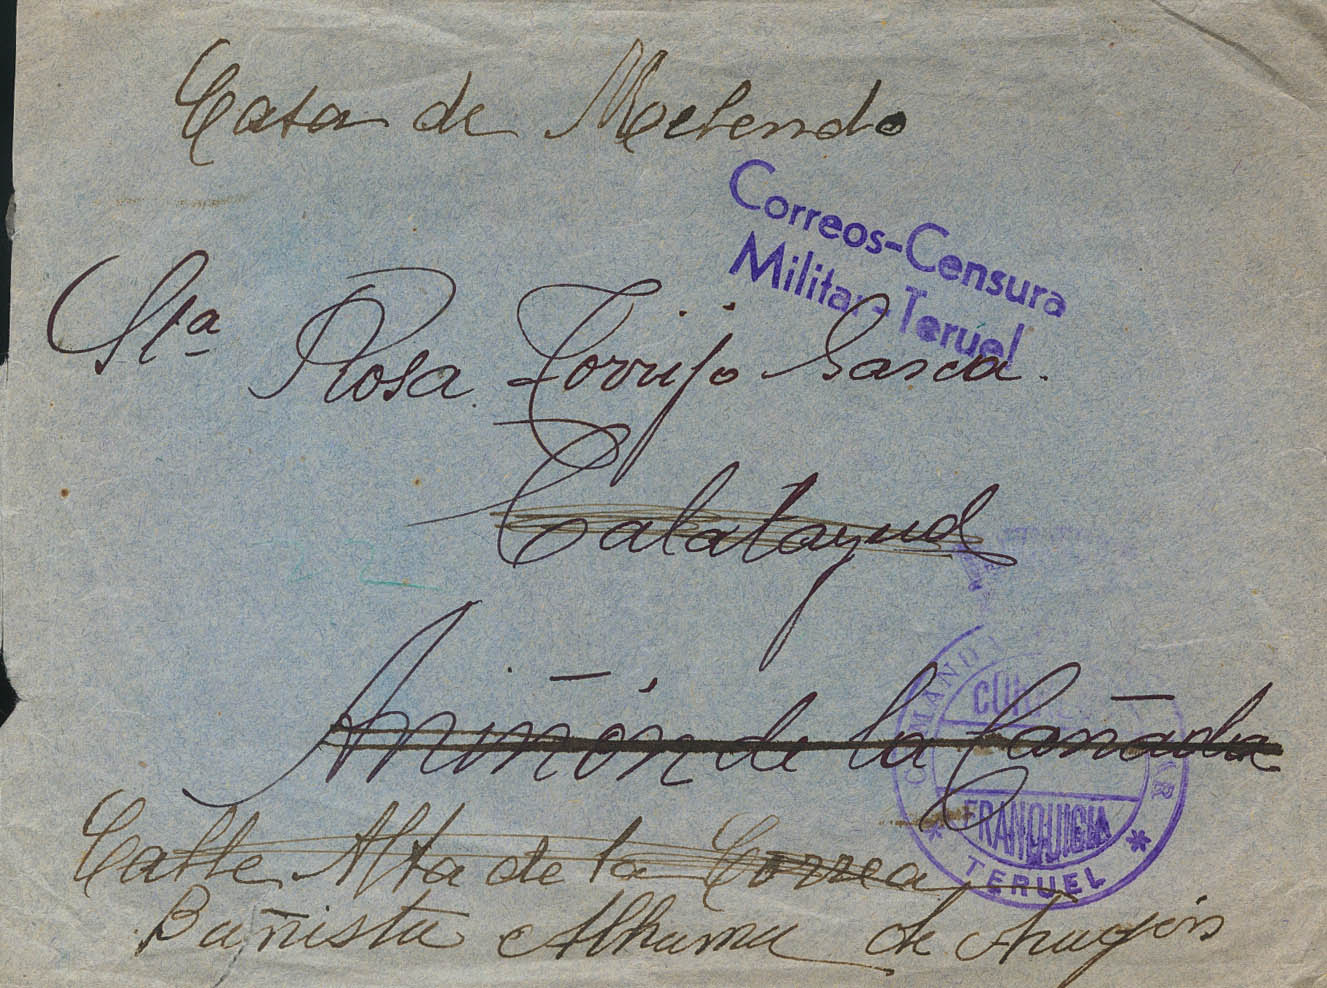 Casa de Melendo
Correos-Censura
Militar-Teruel
Sta Rosa Torrijo Gasca.
Calatayud
Aniñón de la Cañada
FRANQUICIA
* TERUEL *
Calle Alta de la Correa
Bañista Alhama de Aragón